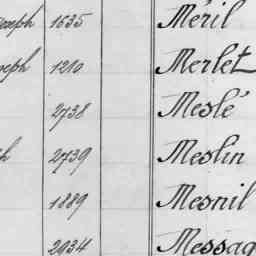 oseph 1635 Méril
seph 1210 Merlet
2738 Meslé
h 2739 Meslin
1889 Mesnil
2034 Messag